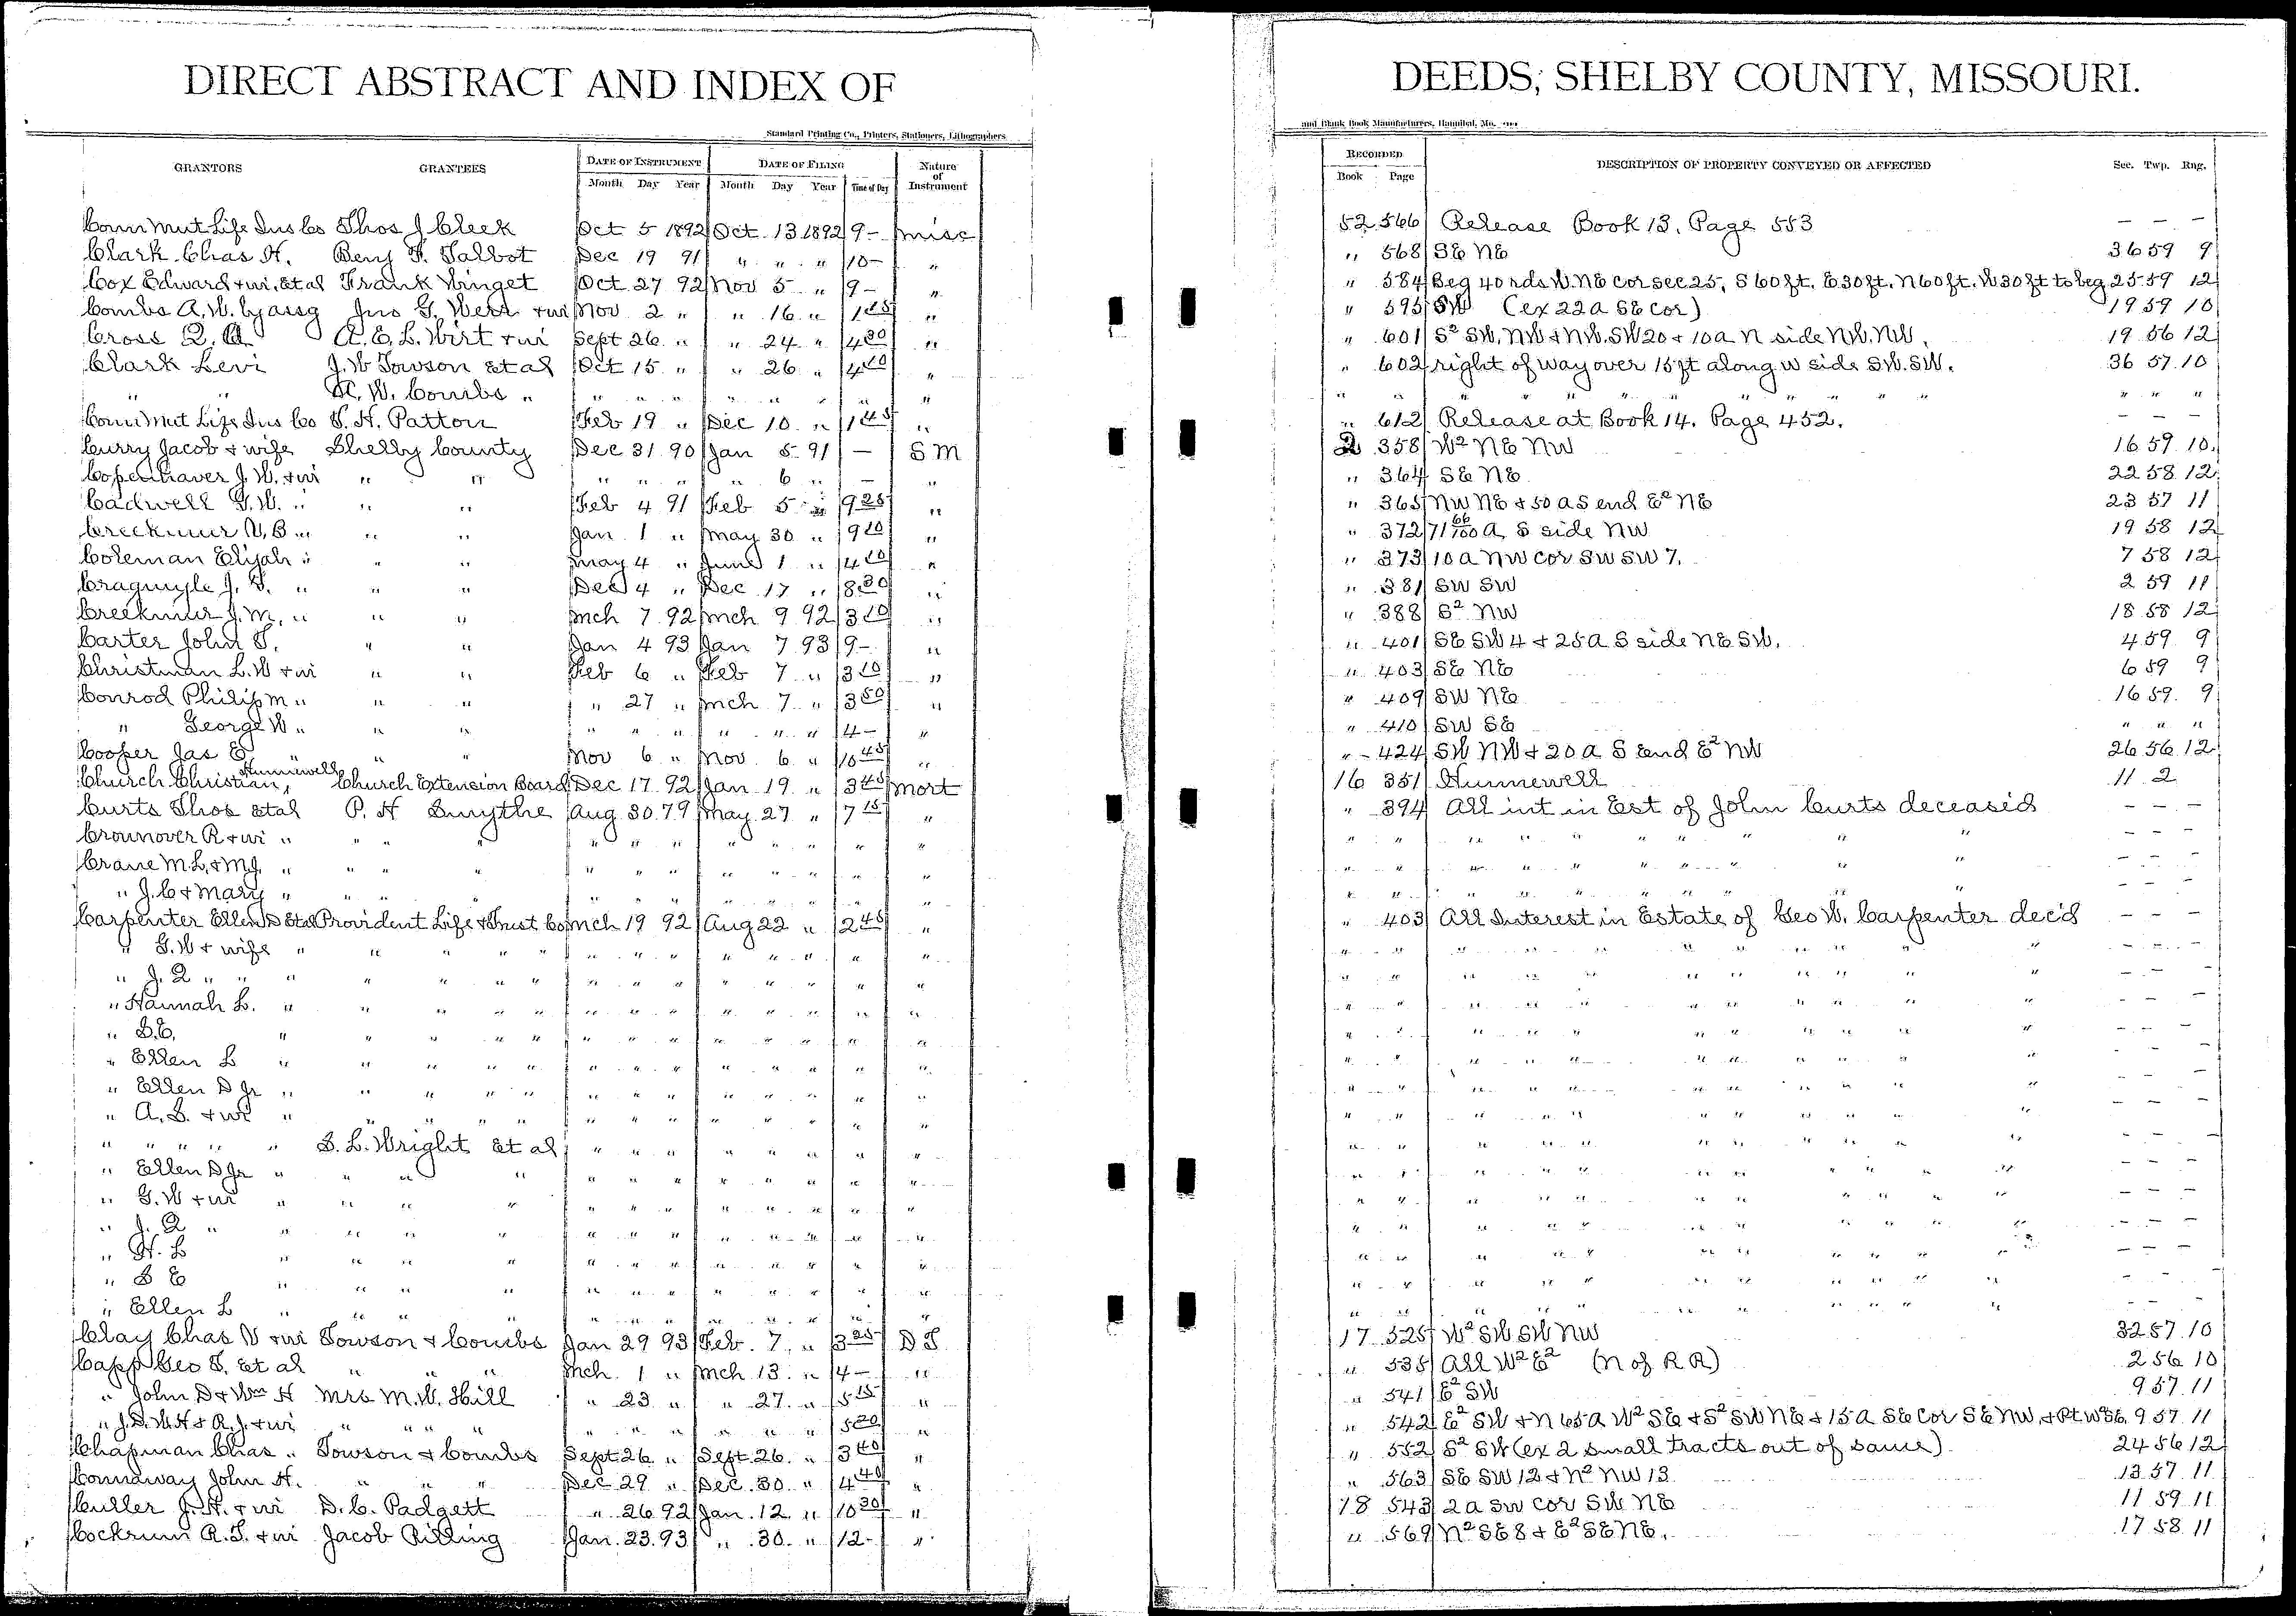 DIRECT ABSTRACT AND INDEX OF
Standard Printing Co., Printers, Stationers, Lithographers
GRANTORS GRANTEES DATE OF INSTRUMENT DATE OF FILING Nature of Instrument
Month Day Year Month Day Year Time of Day
Conn Mut Life Ins Co Thos J Cleek Oct 5 1892 Oct. 13 1892 9- misc
Clark Chas H. Benj F. Talbot Dec 19 91 " " " 10- "
Cox Edward + wi. Et al Frank Winget Oct 27 92 Nov 5 " 9- "
Combs A. W. by assg Jno G. West + wi Nov 2 " " 16 " 1 25 "
Cross Q. A. A. E. L. Wirt + wi Sept 26 " " 24 " 4 30 "
Clark Levi J. W Towson Et al Oct 15 " " 26 " 4 20 "
" " A. W. Combs " " " " " " " " "
Conn Mut Life Ins Co T. H. Patton Feb 19 " Dec 10 " 1 45 "
Curry Jacob + wife Shelby County Dec 31 90 Jan 5 91 — S M
Copenhaver J. W. + wi " " " " " " 6 " — "
Cadwell G. W. " " " Feb 4 91 Feb 5 " 9 25 "
Creekmur U. B " " " Jan. 1 " May 30 " 9 20 "
Coleman Elijah " " " May 4 " June 1 " 4 20 "
Cragmyle J. T. " " " Dec 4 " Dec 17 " 8 30 "
Creekmur J. M. " " " Mch 7 92 Mch 9 92 3 20 "
Carter John T. " " Jan 4 93 Jan 7 93 9- "
Christman L. W + wi " " Feb 6 " Feb 7 " 3 10 "
Conrod Philip M " " " " 27 " Mch 7 " 3 50 "
" George W " " " " " " " " " 4- "
Cooper Jas E " " " Nov 6 " Nov. 6 " 10 45 "
Church Christian, Hunnewell Church Extension Board Dec 17. 92 Jan. 19. " 3 45 Mort
Curts Thos Et al P. H Smythe Aug 30 79 May 27 " 7 15 "
Crounover R + wi " " " " " " " " " " " "
Crane M. L. + M. J. " " " " " " " " " " " "
" J. C + Mary " " " " " " " " " " " "
Carpenter Ellen D Et al Provident Life + Trust Co Mch 19 92 Aug 22 " 2 45 "
" G. W + wife " " " " " " " " " " " " " "
" J. Q " " " " " " " " " " " " " " "
" Hannah L. " " " " " " " " " " " " " "
" S. E. " " " " " " " " " " " " " "
" Ellen L " " " " " " " " " " " " " "
" Ellen D Jr " " " " " " " " " " " " " "
" A. S. + wi " " " " " " " " " " " " " "
" " " " " S. L. Wright Et al " " " " " " " "
" Ellen D Jr " " " " " " " " " " " "
" G. W + wi " " " " " " " " " " " "
" J. Q " " " " " " " " " " " " "
" H. L " " " " " " " " " " " "
" S E " " " " " " " " " " " "
" Ellen L " " " " " " " " " " " "
Clay Chas V + wi Towson + Combs Jan 29 93 Feb. 7 " 3 25 D T
Capp Geo T. Et al " " " Mch. 1 " Mch 13. " 4- "
" John D + Wm H Mrs M. W. Hill " 23 " " 27. " 5 15 "
" J. D. W. H + R. J. + wi " " " " " " " " " 5 20 "
Chapman Chas. " Towson + Combs Sept 26 " Sept. 26. " 3 40 "
Connaway John H. " " " Dec 29 " Dec. 30 " 4 40 "
Culler J. H. + wi D. C. Padgett " 26 92 Jan. 12 " 10 30 "
Cockrum R. T. + wi Jacob Rilling Jan. 23. 93 " 30. " 12- "
DEEDS, SHELBY COUNTY, MISSOURI.
and Blank Book Manufacturers, Hannibal, Mo.
RECORDED DESCRIPTION OF PROPERTY CONVEYED OR AFFECTED Sec. Twp. Rng.
Book Page
52 566 Release Book 13. Page 553 — — —
" 568 SE NE 36 59 9
" 584 Beg 40 rds W. NE cor sec 25, S 60 ft. E. 30 ft. N 60 ft. W 30 ft to beg 25 59 12
" 595 SW (ex 22 a SE cor) 19 59 10
" 601 S² SW, NW + NW. SW 20 + 10 a N side NW. NW. 19 56 12
" 602 right of way over 15 ft along W side SW. SW. 36 57 10
" " " " " " " " " " " " " "
" 612 Release at Book 14. Page 452. — — —
2 358 W² NE NW 16 59 10
" 364 SE NE 22 58 12
" 365 NW NE + 50 a S end E² NE 23 57 11
" 372 71 66/100 A. S side NW 19 58 12
" 373 10 a NW cor SW SW 7. 7 58 12
" 381 SW SW 2 59 11
" 388 S² NW 18 58 12
" 401 SE SW 4 + 25 a S side NE SW. 4 59 9
" 403 SE NE 6 59 9
" 409 SW NE 16 59 9
" 410 SW SE " " "
" 424 SW NW + 20 a S end E² NW 26 56 12
16 351 Hunnewell 11 2
" 394 All int in Est of John Curts deceased — — —
" " " " " " " " " — — —
" " " " " " " " " — — —
" " " " " " " " " — — —
" 403 All Interest in Estate of Geo W. Carpenter dec'd — — —
" " " " " " " " " " — — —
" " " " " " " " " " — — —
" " " " " " " " " " — — —
" " " " " " " " " " — — —
" " " " " " " " " " — — —
" " " " " " " " " " — — —
" " " " " " " " " " — — —
" " " " " " " " " " — — —
" " " " " " " " " " — — —
" " " " " " " " " " — — —
" " " " " " " " " " — — —
" " " " " " " " " " — — —
" " " " " " " " " " — — —
" " " " " " " " " " — — —
17 525 W² SW SW NW 32 57 10
" 535 All W² E² (N of R R) 2 56 10
" 541 E² SW 9 57 11
" 542 E² SW + N 65 a W² SE + S² SW NE + 15 a SE cor SE NW, + Pt. W² SE. 9 57 11
" 552 S² SW (ex 2 small tracts out of same) 24 56 12
" 563 SE SW 12 + N² NW 13 13 57 11
18 543 2 a SW cor SW NE 11 59 11
" 569 N² SE 8 + E² SE NE. 17 58 11